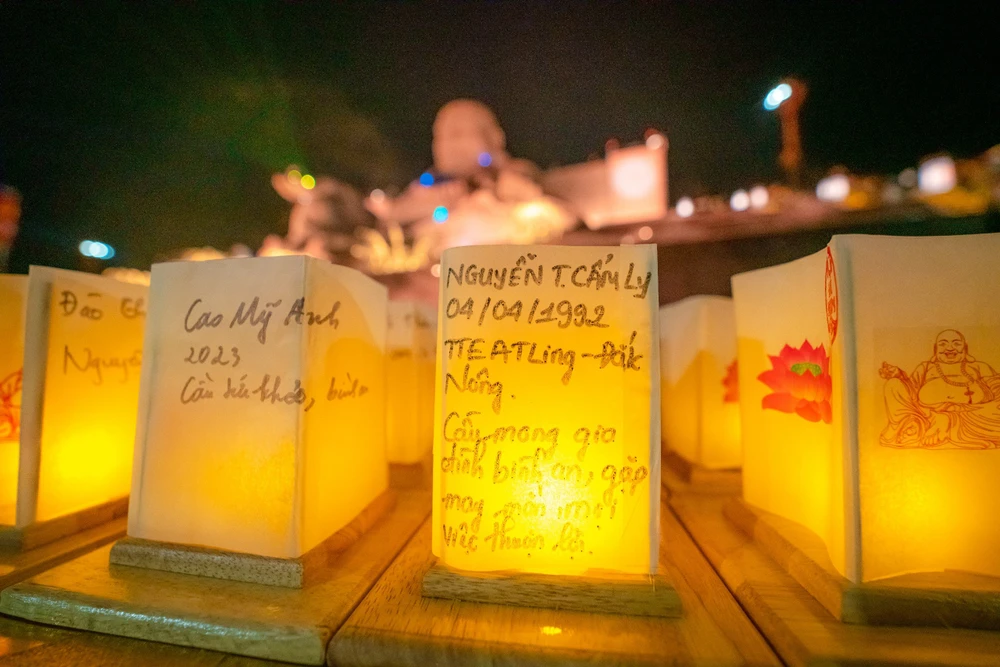 Đào
Nguyễn
Cao Mỹ Anh
2023
Cầu sức khỏe, bình
NGUYỄN T. CẨM LY
04/04/1992
TTEATLing-Đắk
Nông.
Cầu mong gia
đình bình an, gặp
may mắn, mọi
việc thuận lợi.